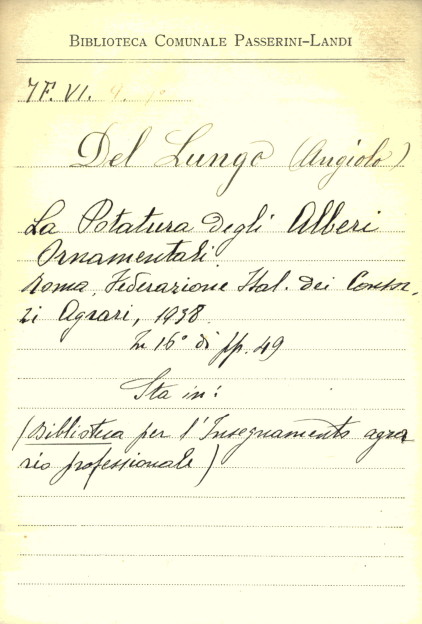 BIBLIOTECA COMUNALE PASSERINI-LANDI
7F. VI. 9.
Del Lungo (Angiolo)
La Potatura degli Alberi
Ornamentali.
Roma, Federazione Ital. dei Consor,
zi Agrari, 1938.
In 16° di pp. 49
Sta in:
(Biblioteca per l'Insegnamento agra
rio professionale)